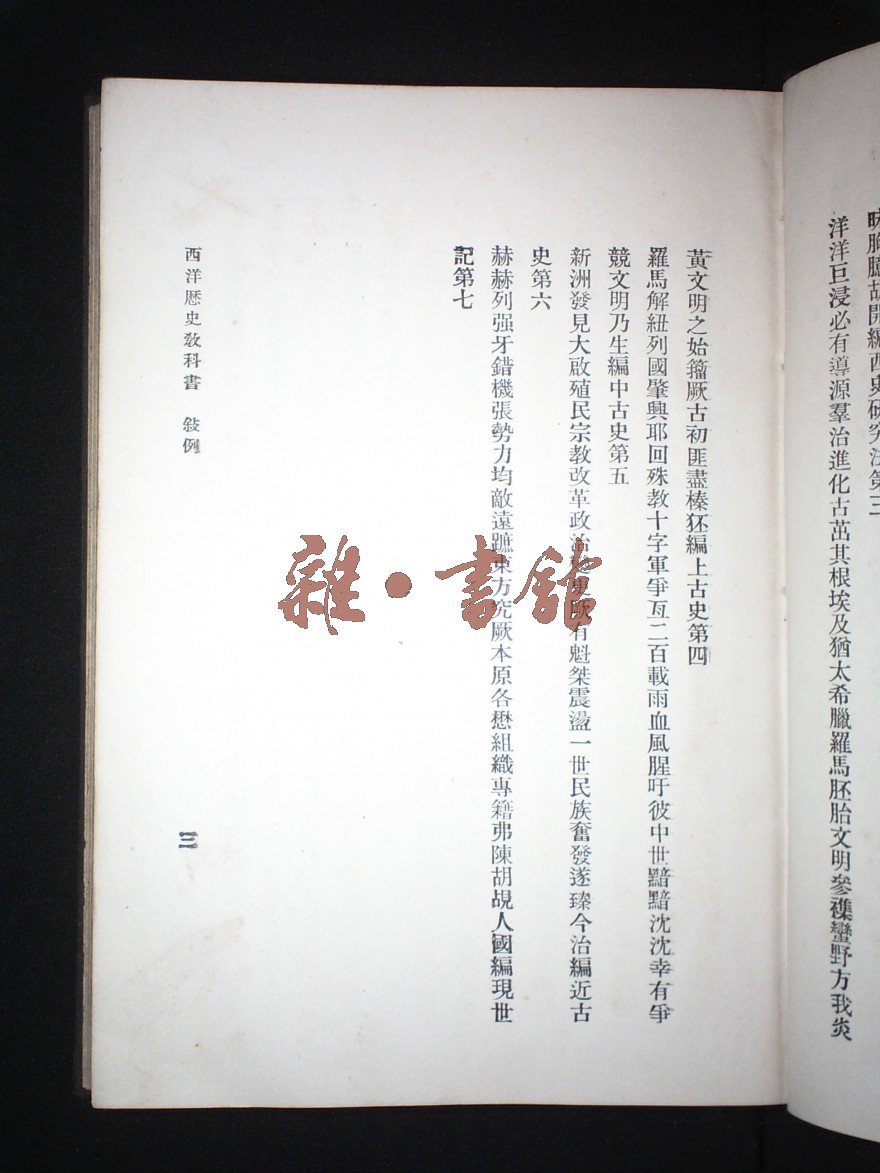 昧胸臆胡開編西史研究法第三
洋洋巨浸必有導源羣治進化古茁其根埃及猶太希臘羅馬胚胎文明參襍蠻野方我炎
黃文明之始籀厥古初匪盡榛狉編上古史第四
羅馬解紐列國肇興耶回殊教十字軍爭亙二百載雨血風腥吁彼中世黯黯沈沈幸有爭
競文明乃生編中古史第五
新洲發見大啟殖民宗教改革政治 厥有魁桀震盪一世民族奮發遂臻今治編近古
史第六
赫赫列强牙錯機張勢力均敵遠蹠東方究厥本原各懋組織專籍弗陳胡覘人國編現世
記第七
西洋歷史敎科書 敍例
三
雜·書館